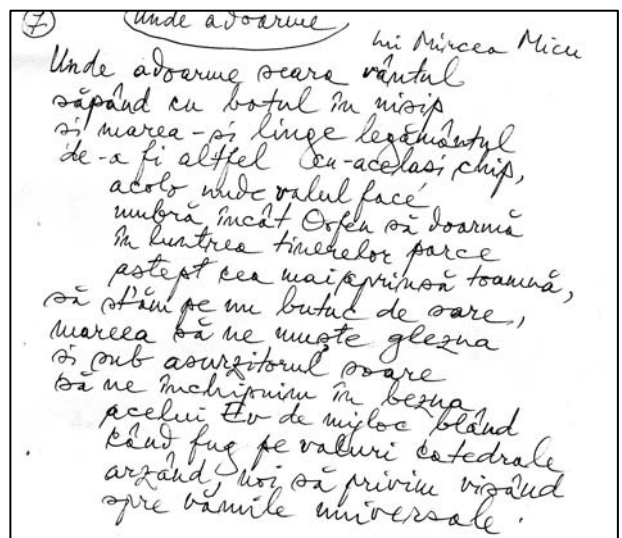 7
Unde adoarme
lui Mircea Micu
Unde adoarme seara vântul
săpând cu botul în nisip
și marea-și linge legământul
de-a fi altfel cu-același chip,
acolo unde valul face
umbră încât Orfeu să doarmă
în luntrea tinerelor parce
aștept cea mai aprinsă toamnă,
să stăm pe un butuc de sare,
mareea să ne muște glezna
și sub asurzitorul soare
să ne închipuim în bezna
acelui Ev de mijloc blând
când fug pe valuri catedrale
arzând, noi să privim visând
spre vămile universale.